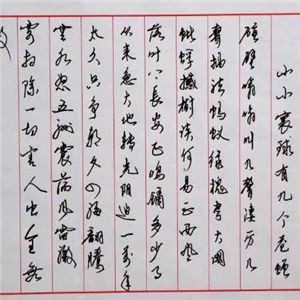 小小寰球有几个苍蝇
碰壁嗡嗡叫几声凄厉几
声抽泣蚂蚁缘槐夸大国
蚍蜉撼树谈何易正西风
落叶下长安飞鸣镝多少事
从来急天地转光阴迫一万年
太久只争朝夕四海翻腾
云水怒五洲震荡风雷激
要扫除一切害人虫全无
敌